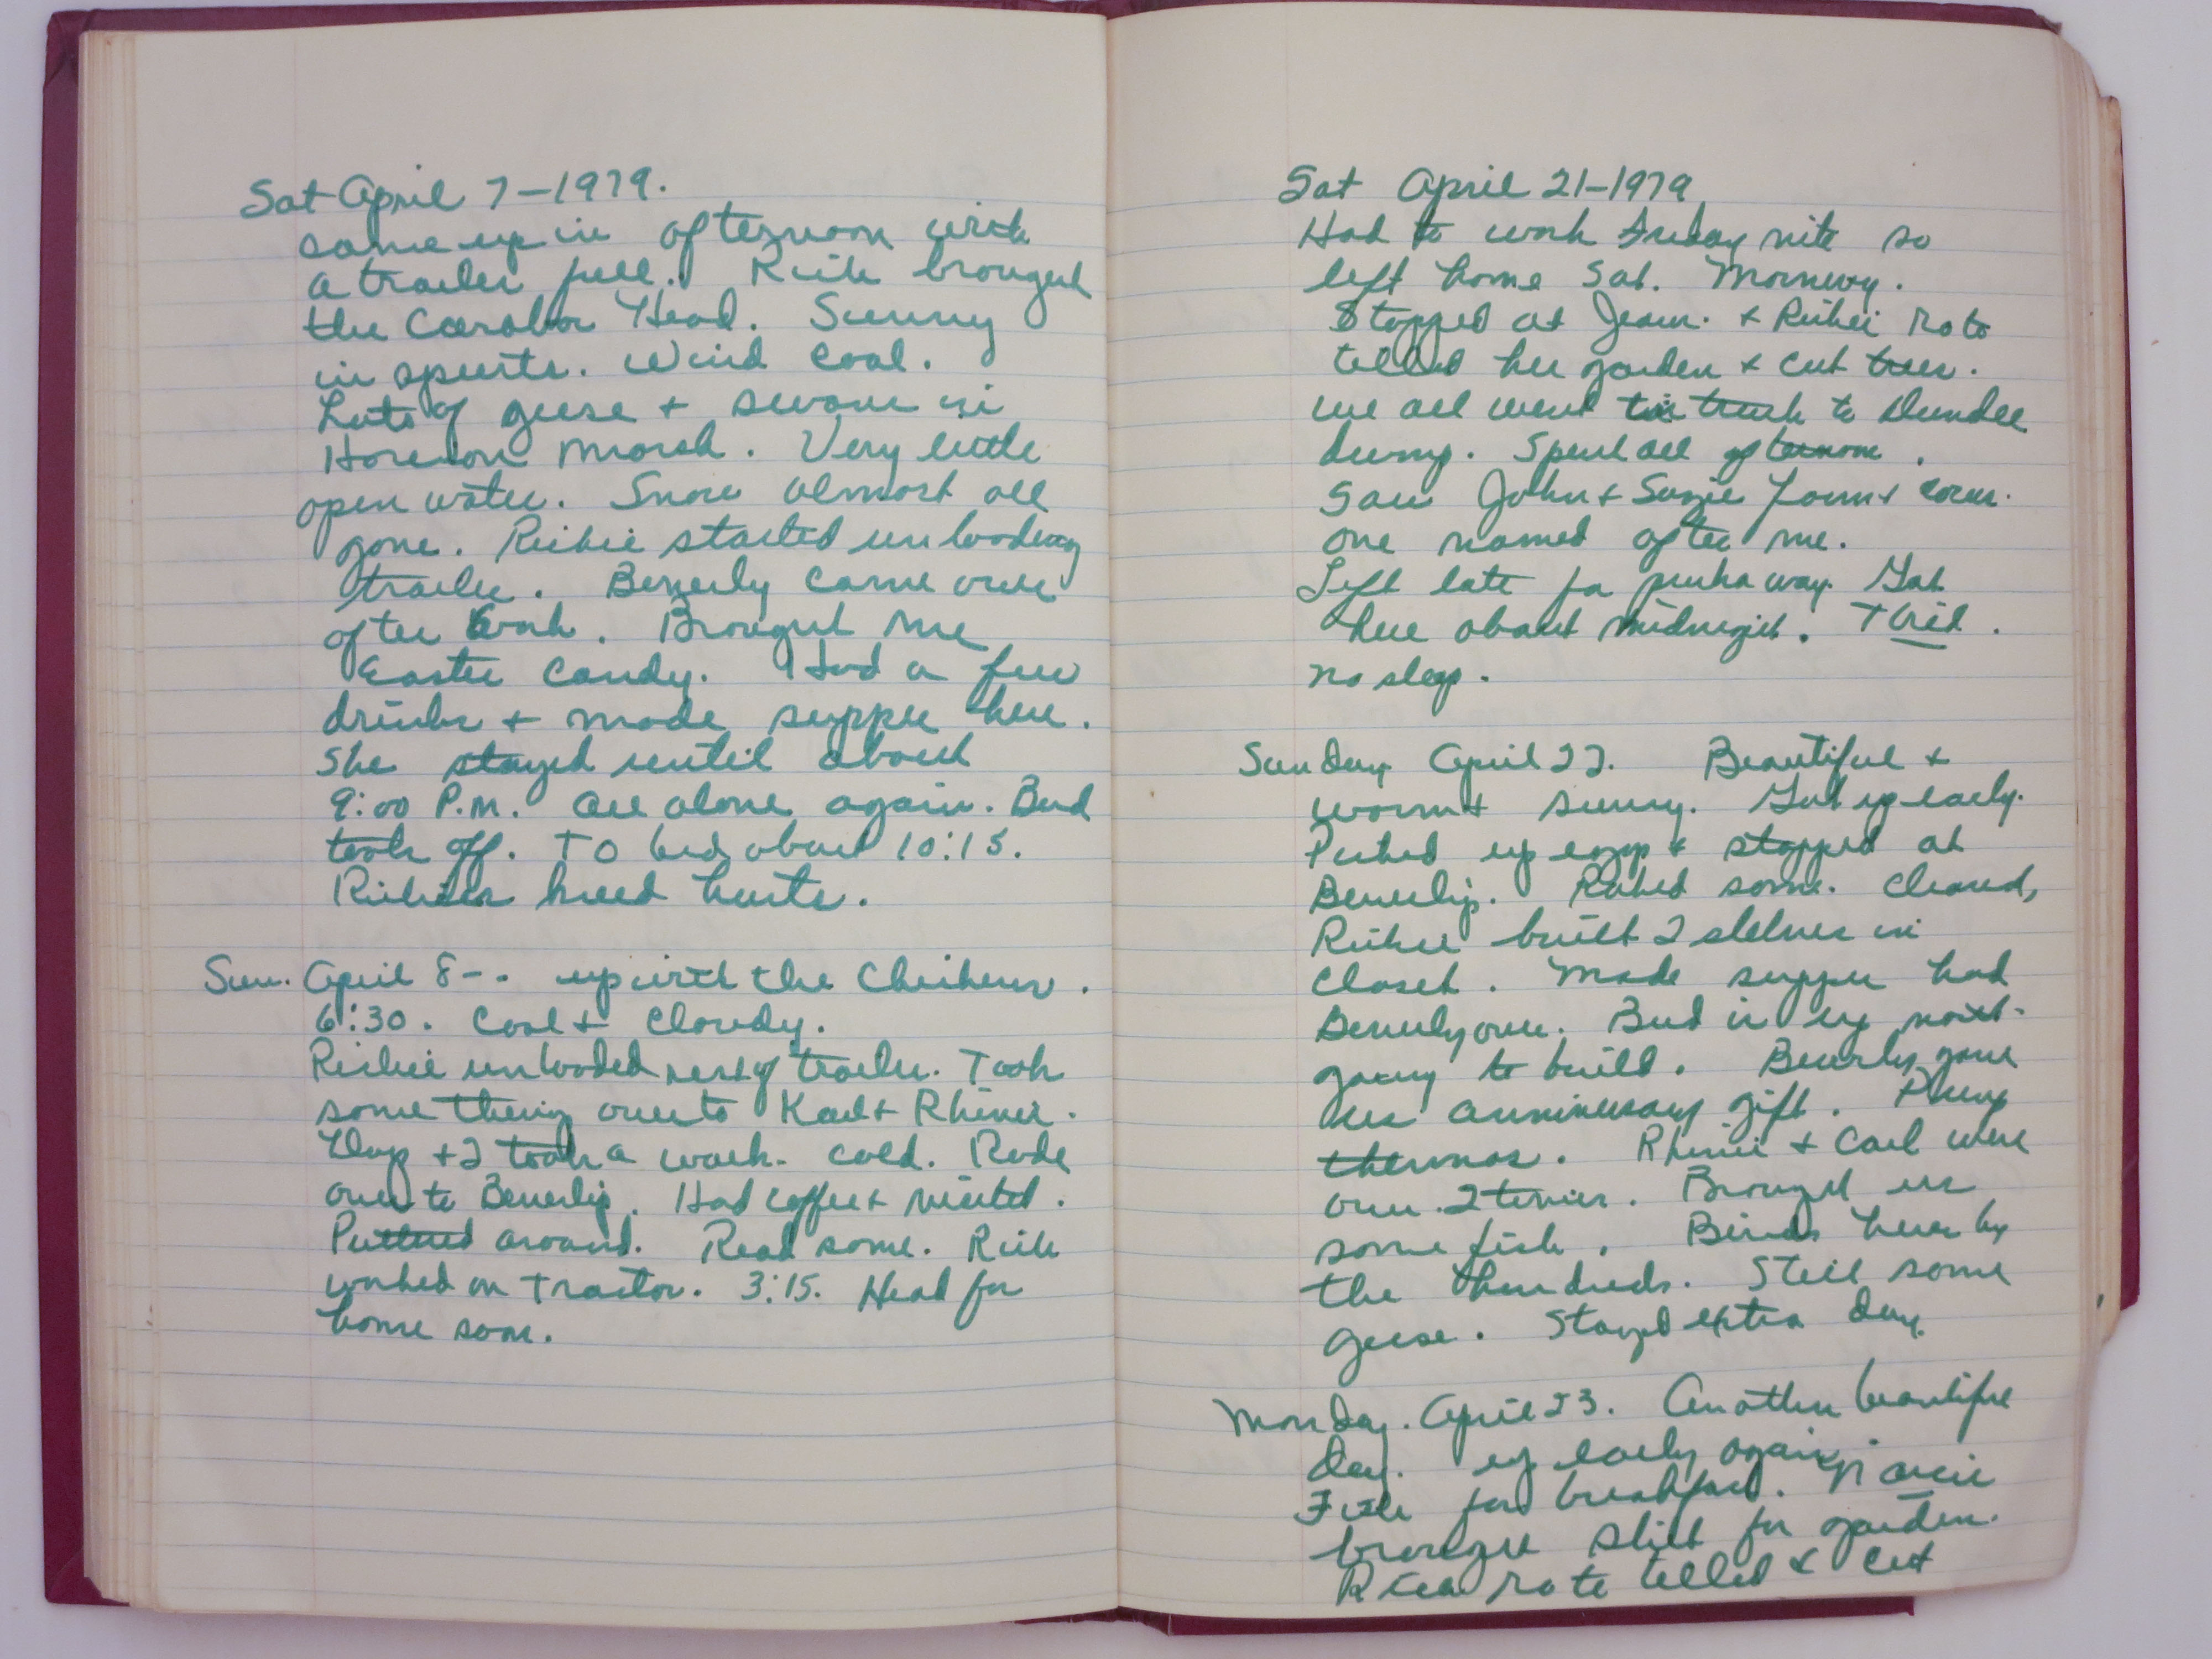 Sat April 7-1979.
came up in afternoon with
a trailer full. Richie brought
the Caribou Head. Sunny
in spurts. Wind cool.
Lots of geese + swans in
Horicon Marsh. Very little
open water. Snow almost all
gone. Richie started unloading
trailer. Beverly came over
after work. Brought me
Easter Candy. Had a few
drinks + made supper here.
She stayed until about
9:00 P.M. All alone again. Bud
took off. To bed about 10:15.
Richies hurts.
Sun. April 8-. up with the Chickens.
6:30. Cool + Cloudy.
Richie unloaded rest of trailer. Took
some things over to Karl + Rhinie.
+ I took a walk. cold. Rode
over to Beverlys. Had coffee + visited.
Puttered around. Read some. Richie
worked on Tractor. 3:15. Head for
home soon.
Sat April 21-1979
Had to work Friday nite so
left home Sat. Morning.
Stopped at Jean + Richie roto
tilled her garden + cut trees.
we all went to Dundee
dump. Spent all afternoon.
Saw John + Suzie Farm + cows.
one named after me.
Left late for Got
here about midnight. Tired.
no sleep.
Sunday April 22. Beautiful +
warm + sunny. Got up early.
Picked up eggs + stopped at
Beverlys. Raked some. Cleaned,
Richie built 2 shelves in
Closet. Made supper had
Beverly over. Bud is up north
going to build. Beverly gave
us anniversary gift. Pump
thermos. Rhinie + Carl were
over 2 times. Brought us
some fish. Birds here by
the hundreds. Still some
geese. Stayed extra day.
Monday. April 23. Another beautiful
day. up early again.
Fish for breakfast.
brought for garden.
roto tilled + cut